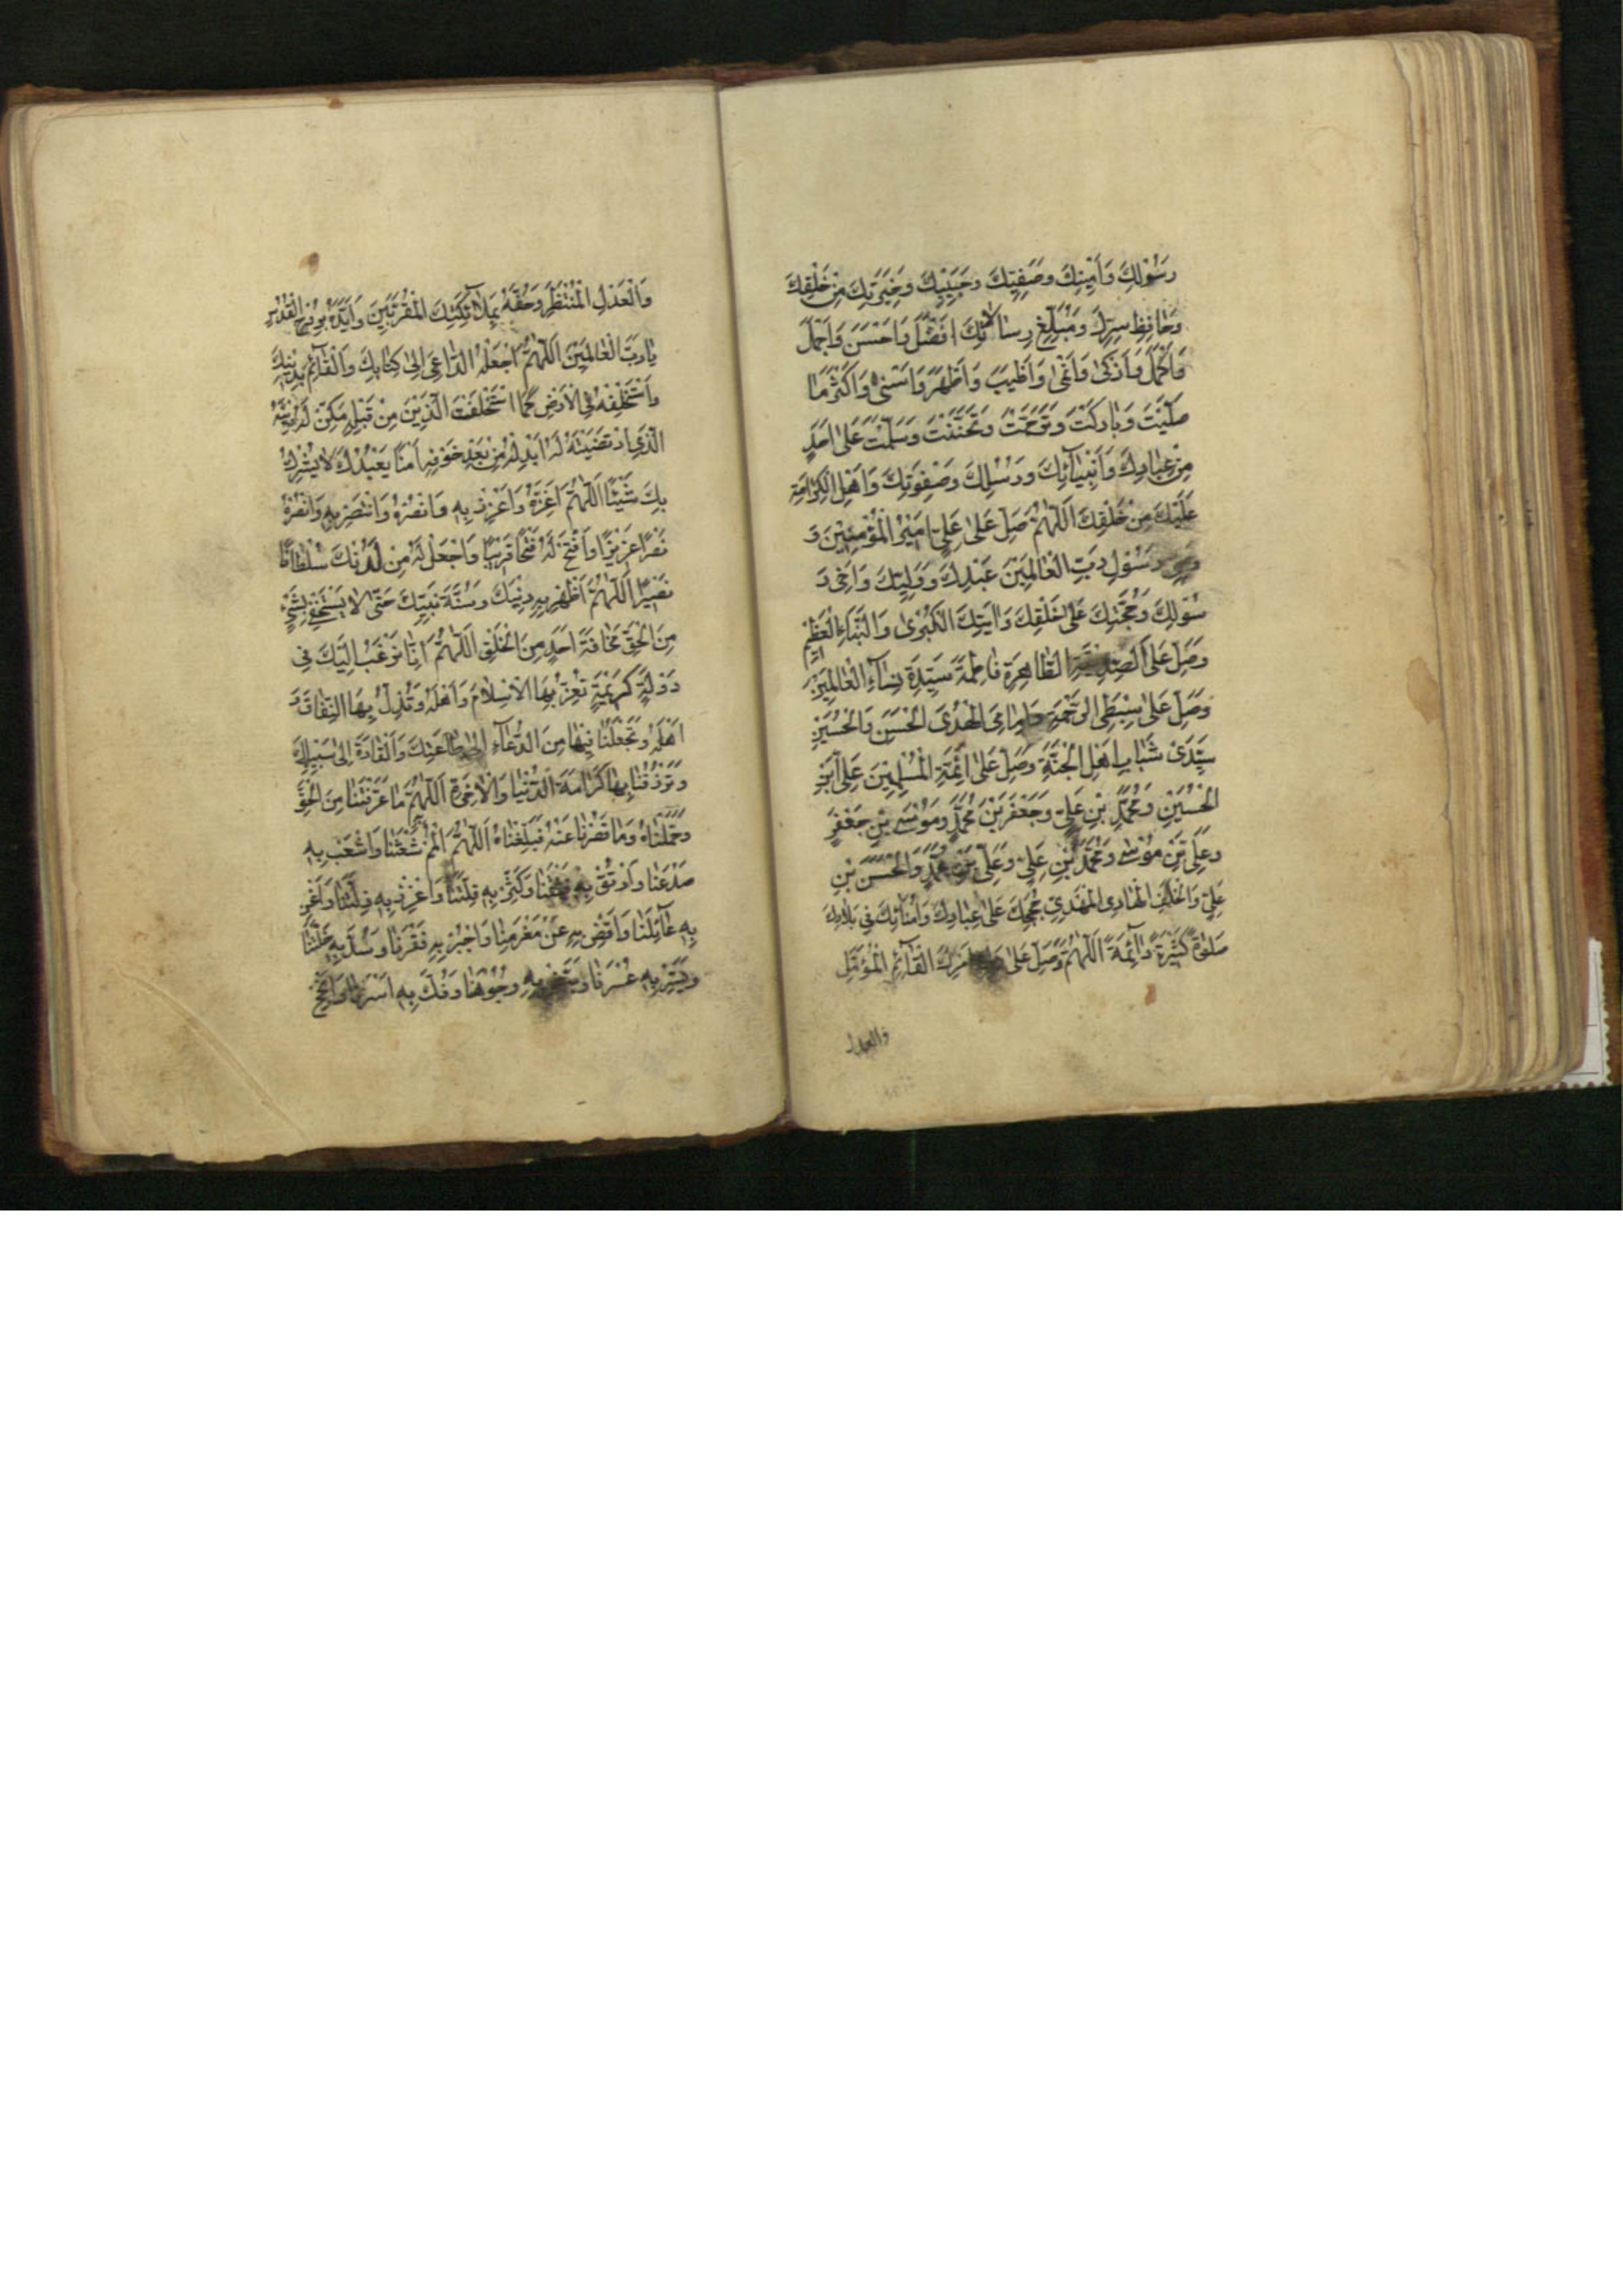 رَسُوْلِكَ وَاَمِيْنِكَ وَصَفِيِّكَ وَحَبِيْبِكَ وَخِيَرَتِكَ مِنْ خَلْقِكَ
وَحَافِظِ سِرِّكَ وَمُبَلِّغِ رِسَالَاتِكَ اَفْضَلَ وَاَحْسَنَ وَاَجْمَلَ
وَاَكْمَلَ وَاَزْكٰى وَاَنْمٰى وَاَطْيَبَ وَاَطْهَرَ وَاَسْنٰى وَاَكْثَرَ مَا
صَلَّيْتَ وَبَارَكْتَ وَتَرَحَّمْتَ وَتَحَنَّنْتَ وَسَلَّمْتَ عَلٰى اَحَدٍ
مِنْ عِبَادِكَ وَاَنْبِيَآئِكَ وَرُسُلِكَ وَصَفْوَتِكَ وَاَهْلِ الْكَرَامَةِ
عَلَيْكَ مِنْ خَلْقِكَ اَللّٰهُمَّ صَلِّ عَلٰى عَلِيٍّ اَمِيْرِ الْمُؤْمِنِيْنَ وَ
رَسُوْلِ رَبِّ الْعَالَمِيْنَ عَبْدِكَ وَوَلِيِّكَ وَاَخِىْ رَ
سُوْلِكَ وَحُجَّتِكَ عَلٰى خَلْقِكَ وَاٰيَتِكَ الْكُبْرٰى وَالنَّبَاءِ الْعَظِيْمِ
وَصَلِّ عَلَى الصِّدِّيْقَةِ الطَّاهِرَةِ فَاطِمَةَ سَيِّدَةِ نِسَآءِ الْعَالَمِيْنَ
وَصَلِّ عَلٰى سِبْطَىِ الرَّحْمَةِ وَاِمَامَىِ الْهُدٰى الْحَسَنِ وَالْحُسَيْنِ
سَيِّدَىْ شَبَابِ اَهْلِ الْجَنَّةِ وَصَلِّ عَلٰى اَئِمَّةِ الْمُسْلِمِيْنَ عَلِىِّ ابْنِ
الْحُسَيْنِ وَمُحَمَّدِ بْنِ عَلِيٍّ وَجَعْفَرِ بْنِ مُحَمَّدٍ وَمُوْسَى بْنِ جَعْفَرٍ
وَعَلِىِّ بْنِ مُوْسٰى وَمُحَمَّدِ بْنِ عَلِيٍّ وَعَلِىِّ بْنِ مُحَمَّدٍ وَالْحَسَنِ بْنِ
عَلِيٍّ وَالْخَلَفِ الْهَادِى الْمَهْدِيِّ حُجَجِكَ عَلٰى عِبَادِكَ وَاُمَنَائِكَ فِىْ بِلَادِكَ
صَلٰوةً كَثِيْرَةً دَآئِمَةً اَللّٰهُمَّ وَصَلِّ عَلٰى اَمْرِكَ الْقَآئِمِ الْمُؤَمَّلِ
والعدل
وَالْعَدْلِ الْمُنْتَظَرِ وَحُفَّهُ بِمَلَآئِكَتِكَ الْمُقَرَّبِيْنَ وَاَيِّدْهُ بِرُوْحِ الْقُدُسِ
يَارَبَّ الْعَالَمِيْنَ اَللّٰهُمَّ اجْعَلْهُ الدَّاعِىَ اِلٰى كِتَابِكَ وَالْقَآئِمَ بِدِيْنِكَ
وَاسْتَخْلِفْهُ فِى الْاَرْضِ كَمَا اسْتَخْلَفْتَ الَّذِيْنَ مِنْ قَبْلِهٖ مَكِّنْ لَهُ دِيْنَهُ
الَّذِى ارْتَضَيْتَهُ لَهُ اَبْدِلْهُ مِنْ بَعْدِ خَوْفِهٖ اَمْنًا يَعْبُدُكَ لَا يُشْرِكُ
بِكَ شَيْئًا اَللّٰهُمَّ اَعِزَّهُ وَاَعْزِزْ بِهٖ وَانْصُرْهُ وَانْتَصِرْ بِهٖ وَانْصُرْهُ
نَصْرًا عَزِيْزًا وَافْتَحْ لَهُ فَتْحًا قَرِيْبًا وَاجْعَلْ لَهُ مِنْ لَدُنْكَ سُلْطَانًا
نَصِيْرًا اَللّٰهُمَّ اَظْهِرْ بِهٖ دِيْنَكَ وَسُنَّةَ نَبِيِّكَ حَتّٰى لَا يَسْتَخْفِىَ بِشَىْءٍ
مِنَ الْحَقِّ مَخَافَةَ اَحَدٍ مِنَ الْخَلْقِ اَللّٰهُمَّ اِنَّا نَرْغَبُ اِلَيْكَ فِىْ
دَوْلَةٍ كَرِيْمَةٍ تُعِزُّ بِهَا الْاِسْلَامَ وَاَهْلَهُ وَتُذِلُّ بِهَا النِّفَاقَ وَ
اَهْلَهُ وَتَجْعَلُنَا فِيْهَا مِنَ الدُّعَآءِ اِلٰى طَاعَتِكَ وَالْقَادَةِ اِلٰى سَبِيْلِكَ
وَتَرْزُقُنَا بِهَا كَرَامَةَ الدُّنْيَا وَالْاٰخِرَةِ اَللّٰهُمَّ مَا عَرَّفْتَنَا مِنَ الْحَقِّ
فَحَمِّلْنَاهُ وَمَا قَصُرْنَا عَنْهُ فَبَلِّغْنَاهُ اَللّٰهُمَّ الْمُمْ شَعَثَنَا وَاشْعَبْ بِهٖ
صَدْعَنَا وَارْتُقْ بِهٖ فَتْقَنَا وَكَثِّرْ بِهٖ قِلَّتَنَا وَاَعْزِزْ بِهٖ ذِلَّتَنَا وَاَغْنِ
بِهٖ عَآئِلَنَا وَاقْضِ بِهٖ عَنْ مَغْرَمِنَا وَاجْبُرْ بِهٖ فَقْرَنَا وَسُدَّ بِهٖ خَلَّتَنَا
وَيَسِّرْ بِهٖ عُسْرَنَا وَبَيِّضْ بِهٖ وُجُوْهَنَا وَفُكَّ بِهٖ اَسْرَنَا وَاَنْجِحْ